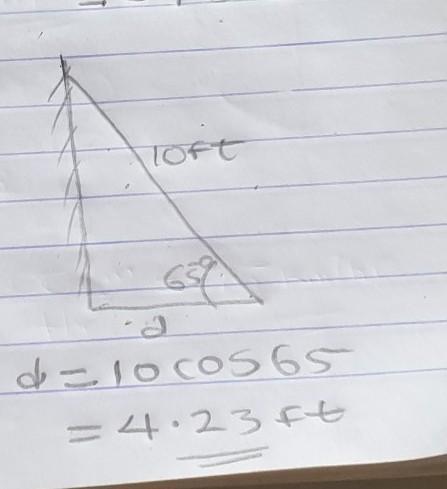 10ft
65°
d
d = 10 cos 65
= 4.23 ft